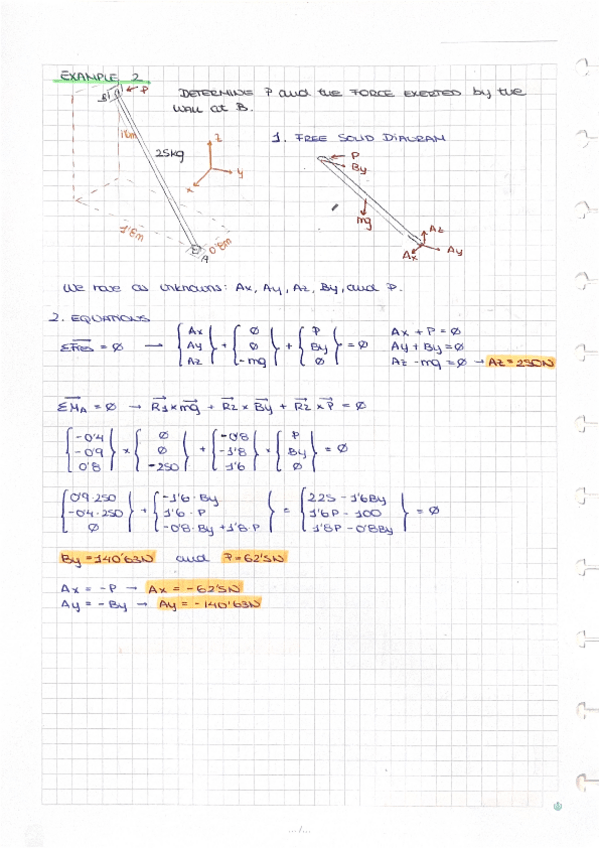 EXAMPLE 2
DETERMINE P and the FORCE EXERTED by the
WALL AT B.
B
P
1'6m
25kg
z
y
x
1'8m
0'8m
A
1. FREE SOLID DIAGRAM
P
By
mg
Az
Ay
Ax
We have as unknowns: Ax, Ay, Az, By, and P.
2. EQUATIONS
ΣFres = Ø → {Ax Ay Az} + {Ø Ø -mg} + {P By Ø} = Ø
Ax + P = Ø
Ay + By = Ø
Az - mg = Ø → Az = 250N
ΣMA = Ø → R1 x mg + R2 x By + R2 x P = Ø
{-0'4 -0'9 0'8} x {Ø Ø -250} + {-0'8 -1'8 1'6} x {P By Ø} = Ø
{0'9·250 -0'4·250 Ø} + {-1'6·By 1'6·P -0'8·By + 1'8·P} = {225 - 1'6By 1'6P - 100 1'8P - 0'8By} = Ø
By = 140'63N and P = 62'5N
Ax = -P → Ax = -62'5N
Ay = -By → Ay = -140'63N
.../...